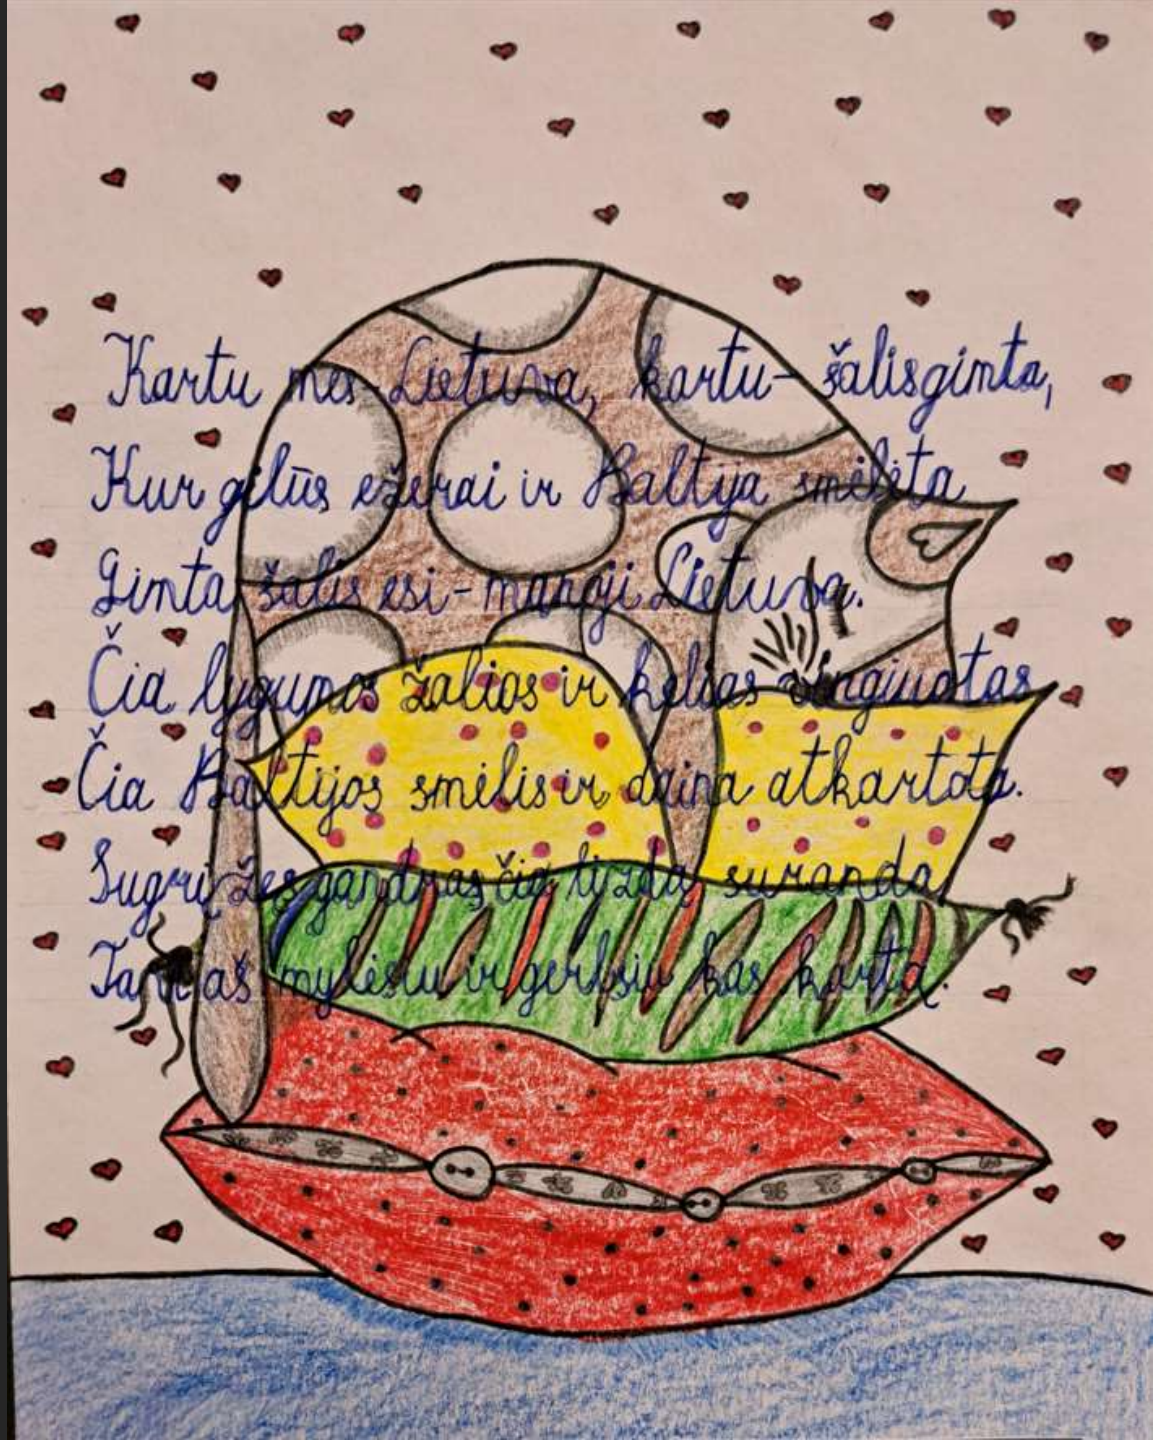 Kartu mes-Lietuva, kartu- šalis gimta,
Kur gilūs ežerai ir Baltija smėlėta
Gimta šalis esi-manoji Lietuva.
Čia lygumos žalios ir kelias vingiuotas
Čia Baltijos smėlis ir daina atkartota.
Sugrįžęs gandras čia lizdą suranda
Tad aš mylėsiu ir gerbsiu kas kartą.